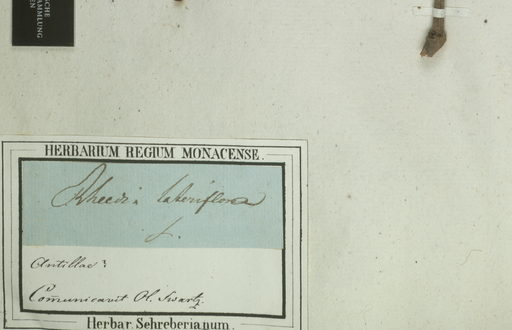 SCHE
AMMLUNG
EN
HERBARIUM REGIUM MONACENSE.
Rheedia lateriflora
L.
Antillae:
Comunicavit Ol. Swartz.
Herbar. Schreberianum.